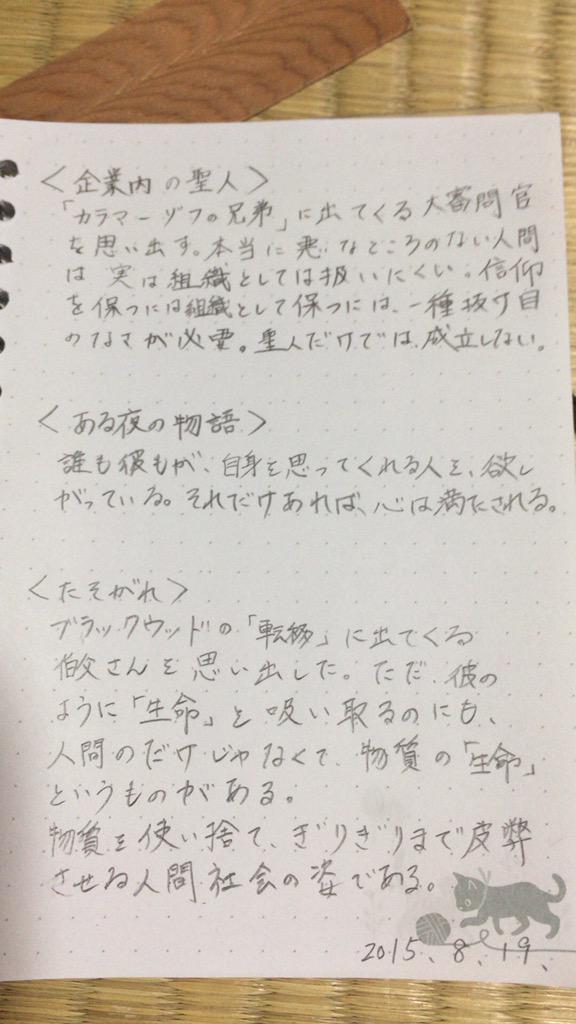 <企業内の聖人>
「カラマーゾフの兄弟」に出てくる大審問官
を思い出す。本当に悪いなところのない人間
は実は組織としては扱いにくい。信仰
を保つには組織として保つには、一種抜け目
のなさが必要。聖人だけでは、成立しない。
<ある夜の物語>
誰も彼もが、自身を思ってくれる人を、欲し
がっている。それだけあれば、心は満たされる。
<たそがれ>
ブラックウッドの「転移」に出てくる
伯父さんを思い出した。ただ、彼の
ように「生命」を吸い取るのにも、
人間のだけじゃなくて、物質の「生命」
というものがある。
物質を使い捨て、ぎりぎりまで皮弊
させる人間社会の姿である。
2015、8、19、